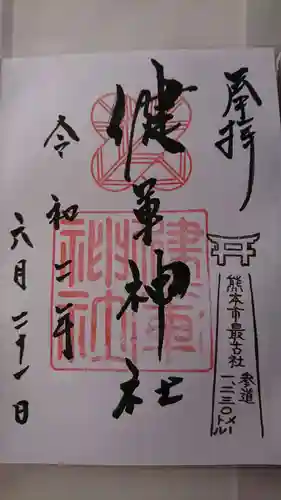 奉拝
健軍神社
健軍神社
令和二年
六月二十一日
熊本市最古社
参道
一、二三〇メートル